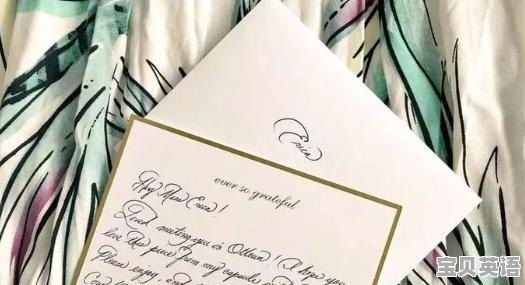 Erica
ever so grateful
Hey Miss Erica!
Loved meeting you in Ottawa! I hope you
love the piece from my capsule
Please enjoy, and
宝贝英语